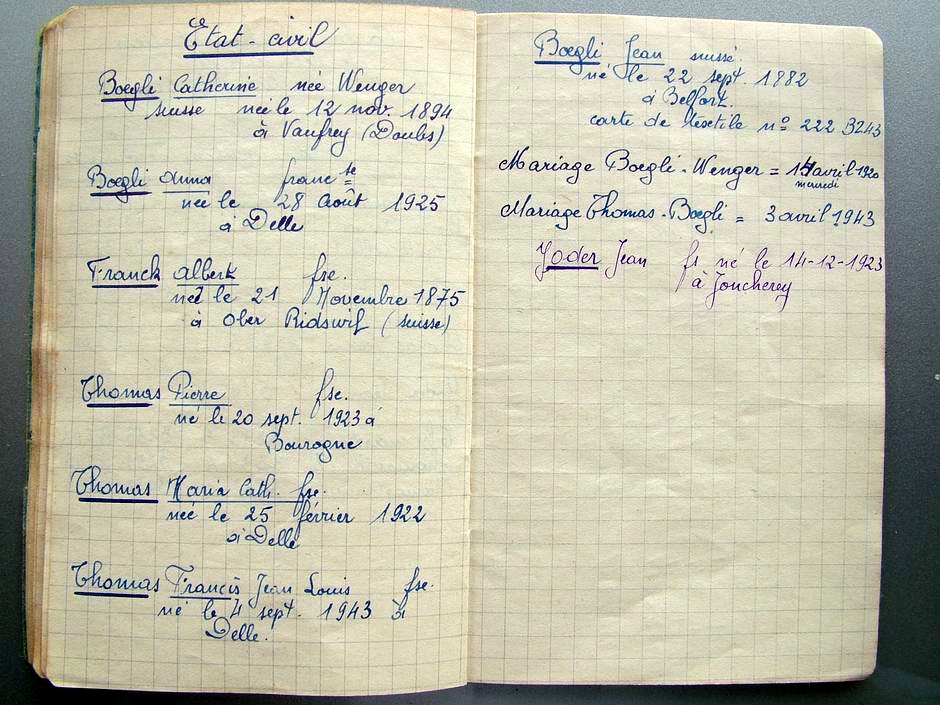 Etat-civil
Boegli Catherine née Wenger
suisse née le 12 nov. 1894
à Vaufrey (Doubs)
Boegli Anna franc se
née le 28 Août 1925
à Delle
Franck Albert fse.
né le 21 Novembre 1875
à Ober Ridswil (suisse)
Thomas Pierre fse.
né le 20 sept. 1923 à
Bourogne
Thomas Maria Cath. fse.
née le 25 février 1922
à Delle
Thomas Francis Jean Louis fse.
né le 4 sept. 1943 à
Delle.
Boegli Jean suisse.
né le 22 sept. 1882
à Belfort.
carte de textile nº 222 3243
Mariage Boegli-Wenger = 14 avril 1920
mercredi
Mariage Thomas-Boegli = 3 avril 1943
Yoder Jean fs né le 14-12-1923
à Joncherey